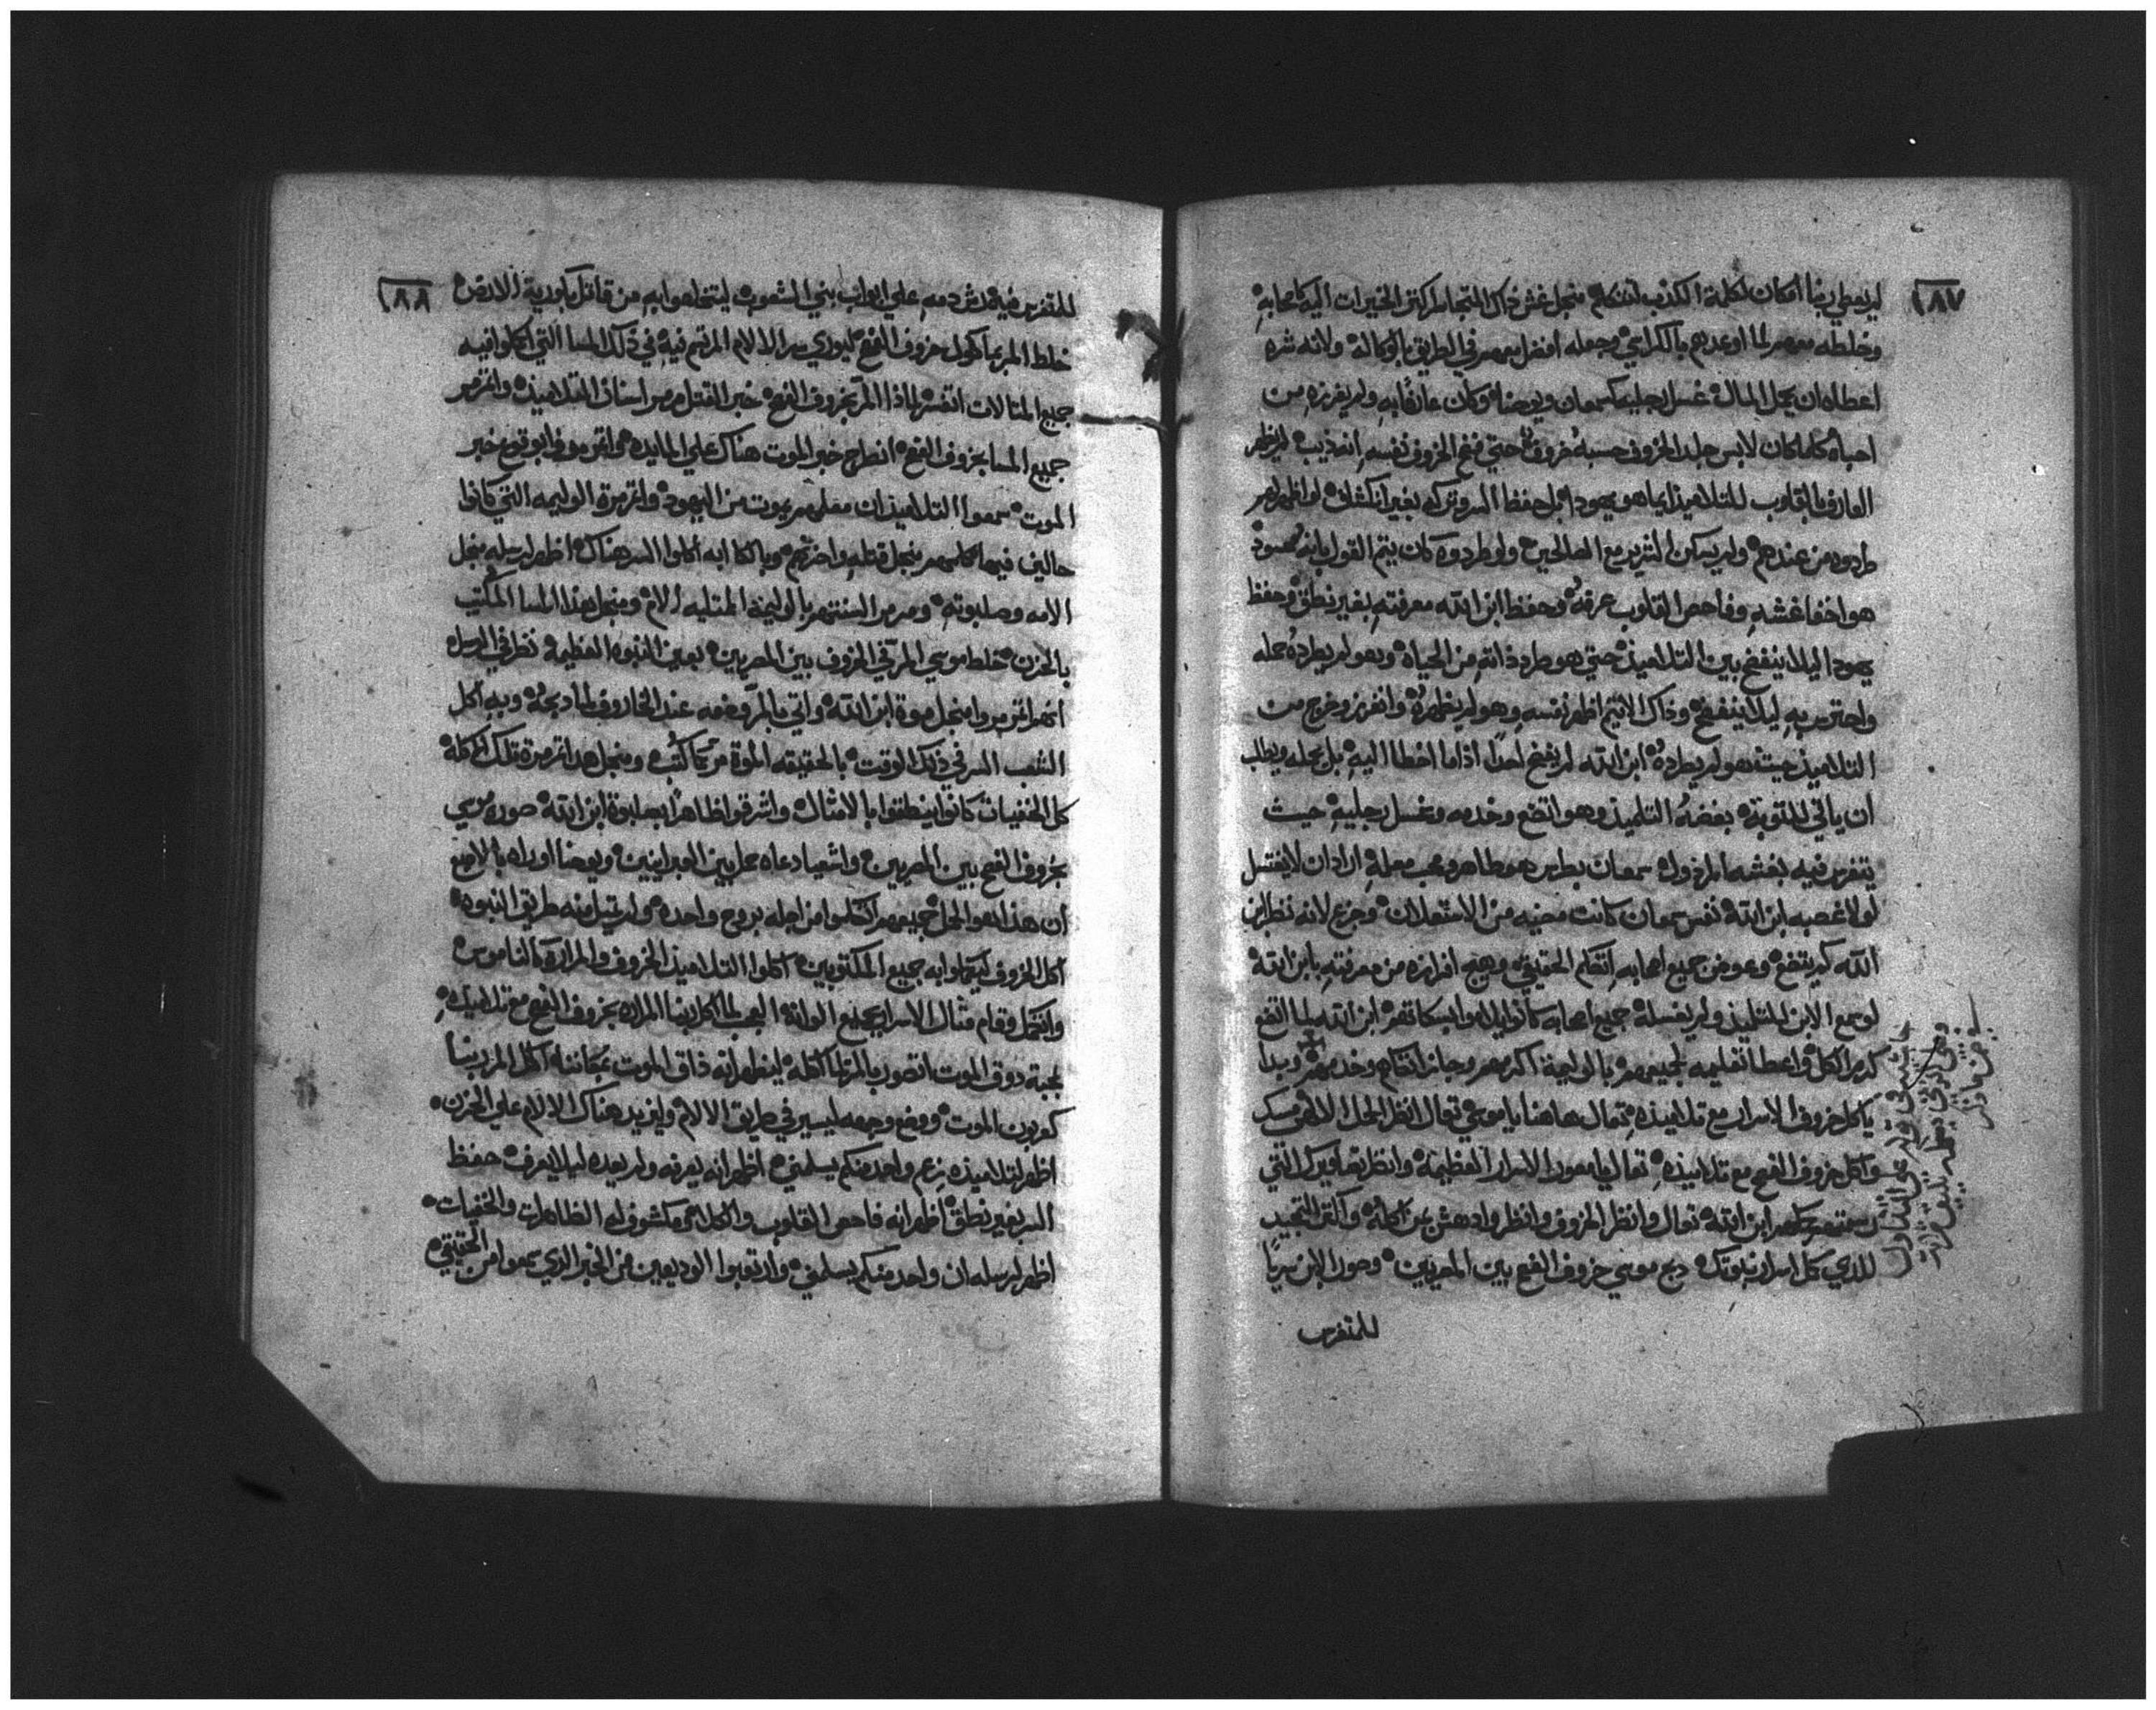 ١٨٧
لم يعطي ربنا امكان لكلمة الكذب لتتكلم منجل غش ذاك المتجاسر كتر الخيرات اليه كاصحابه
وخلطه معهم لما اوعدهم بالكراسي وجعله افضل منهم في الطريق بالوكالة ولانه شره
اعطاه ان يحمل المال غسل رجليه كسمعان ويوحنا وكان عارفا به ولم يفرزه من
احباه كلما كان لابس جلد الخروف حسبه خروف حتي فضح الخروف نفسه انه ذيب لم يظهر
العارف بالقلوب للتلاميذ ايما هو يهودا بل حفظ السر وتركه بغير انكشاف لو اظهره لهم
طردوه من عندهم ولم يسكن الشرير مع الصالحين ولو طردوه كان يتم القول بانه محسود
هو اخفا غشه وفاحص القلوب عرفه وحفظ ابن الله معرفته بغير نطق وحفظ
يهودا ليلا ينفضح بين التلاميذ حتي هو طرد ذاته من الحياة وهو لم يطرده حمله
واحترس به ليلا ينفضح وذاك الاثيم اظهر نفسه وهو لم يظهره وانفرز وخرج من
التلاميذ حيث هو لم يطرده ابن الله لم يفضح احدا اذا ما اخطا اليه بل يحمله ويطلب
ان ياتي للتوبة بغضه التلميذ وهو اتضع وخدمه وغسل رجليه حيث
يتفرس فيه بغشه المرذول سمعان بطرس هو طاهر ومحب معلمه اراد ان لا يغتسل
لولا غصبه ابن الله نفس سمعان كانت مضيه من الاستعلان وجزع لانه نظر ابن
الله كم يتضع وعوض جميع اصحابه اتكلم الحقيقي وهيج افرازه من معرفته بابن الله
لو سمع الابن للتلميذ ولم يغسله جميع اصحابه كانوا يلاموا بسكاتهم ابن الله لما اتضع
كرم الكل واعطا تعليمه لجميعهم بالوليمة اكرمهم وجلس اتكاهم وخدمهم وبدا
ياكل خروف الاسرار مع تلاميذه تعال هاهنا يا موسي تعال انظر الجمل الالهي
واكل خروف الفصح مع تلاميذه تعال يا مصور الاسرار العظيمة وانظر تصاويرك التي
رسمتهم كملهم ابن الله تعال وانظر الخروف وانظر وادهش عن اكله واكثر التمجيد
للذي كمل اسرار نبوتك دبح موسي خروف الفصح بين المصريين وصور الابن سريا
للمتفرس
١٨٨
للمتفرس فيه رش دمه علي ابواب بني الشعوب ليتخلصوا به من قاتل باكورية الارض
خلط المر بماكول خروف الفصح ليوري سر الالام المرتسم فيه في ذلك المسا التي اكملوا فيه
جميع المثالات انفسر لماذا المر بخروف الفصح خبر القتل مرمر اسنان التلاميذ واتمرمر
جميع المسا بخروف الفصح انطرح خبر الموت هناك علي المايده واتمرمروا بوقوع خبر
الموت سمعوا التلاميذ ان معلمهم يموت من اليهود واتمرمرة الوليمه التي كانوا
جالسين فيها كلهم منجل قتله واحزنهم وبالكابه اكلوا السر هناك اظهر لرسله منجل
الامه وصلبوته ومرمر السنتهم بالوليمة المتليه الام ومنجل هذا المسا المكتب
بالحزن خلط موسي المر في الخروف بين المصريين بعين النبوه العظيمة نظر في الرسل
انهم اتمرمروا منجل موة ابن الله واتي بالمر وضعه عند الخاروف لما دبحه وبه اكل
الشعب السر في ذلك الوقت بالحقيقه الموة مر كما كتب ومنجل هذا اتمرمرة تلك الاكلة
كل الخفيات كانوا ينطقوا بالامثال واشرقوا ظاهرا بصلبوة ابن الله صوره موسي
بخروف الفصح بين المصريين واشعيا دعاه حمل بين العبرانيين ويوحنا اوراه بالاصبع
ان هذا هو الحمل جميعهم اتكلموا من اجله بروح واحده ولم تبطل منه طريق النبوه
اكل الخروف ليكملوا به جميع المكتوبين اكلوا التلاميذ الخروف والمرارة كالناموس
واتكمل وقام مثال الاسرار بجميع الوانه العجب لما اكل ربنا المراره بخروف الفصح مع تلاميذه
بمحبة دوق الموت اتصور بالمر لما اكله ليظهر انه ذاق الموت عوضنا اكل المر ربنا
كعربون الموت ووضع وجهه ليسير في طريق الالام وليزيد هناك الالام علي الحزن
اظهر لتلاميذه بزعم واحد منكم يسلمني اظهر انه يعرفه ولم يعده ليلا يعرف حفظ
السر بغير نطق اظهر انه فاحص القلوب والكل شي مكشوف له الظاهرات والخفيات
اظهر لرسله ان واحد منكم يسلمني وارتعبوا الوديعين من الخبر الذي سمعوا من الحقيقي